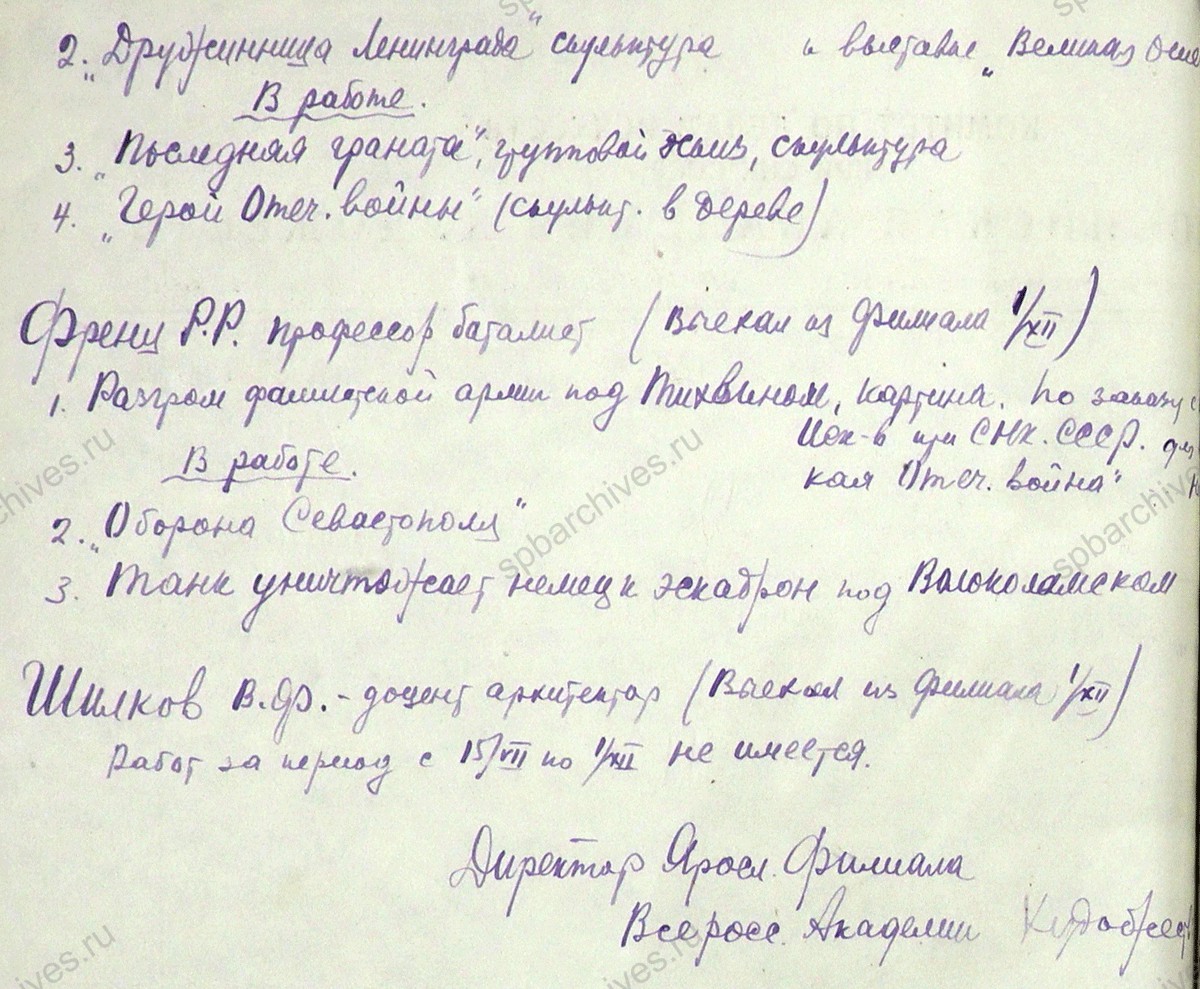 2. „Дружинница Ленинграда" скульптура к выставке „Великая Оте
В работе.
3. „Последняя граната", групповой эскиз, скульптура
4. „Герой Отеч. войны" (скульпт. в дереве)
Френц Р.Р. профессор баталист (Выехал из Филиала 1/XII)
1. Разгром фашистской армии под Тихвином, картина. По заказу
Иск-в при СНК. СССР. для
В работе.
кая Отеч. война"
2. „Оборона Севастополя"
3. Танк уничтожает немецк эскадрон под Волоколамском
Шилков В.Ф. - доцент архитектор (Выехал из Филиала 1/XII)
Работ за период с 15/VII по 1/XII не имеется.
Директор Яросл. Филиала
Всеросс. Академии Художест
spbarchives.ru